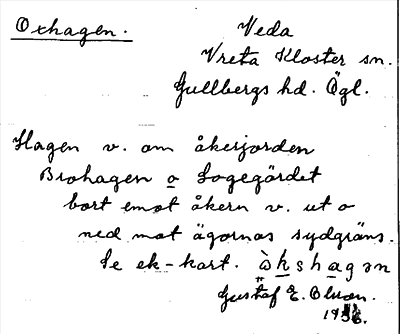 Oxhagen.
Veda
Vreta Kloster sn.
Gullbergs hd. Ögl.
Hagen v. om åkerjorden
Brohagen o Logegärdet
bort emot åkern v. ut o
ned mot ägornas sydgräns.
Se ek-kart. ὼkshagən
Gustaf E. Olsson.